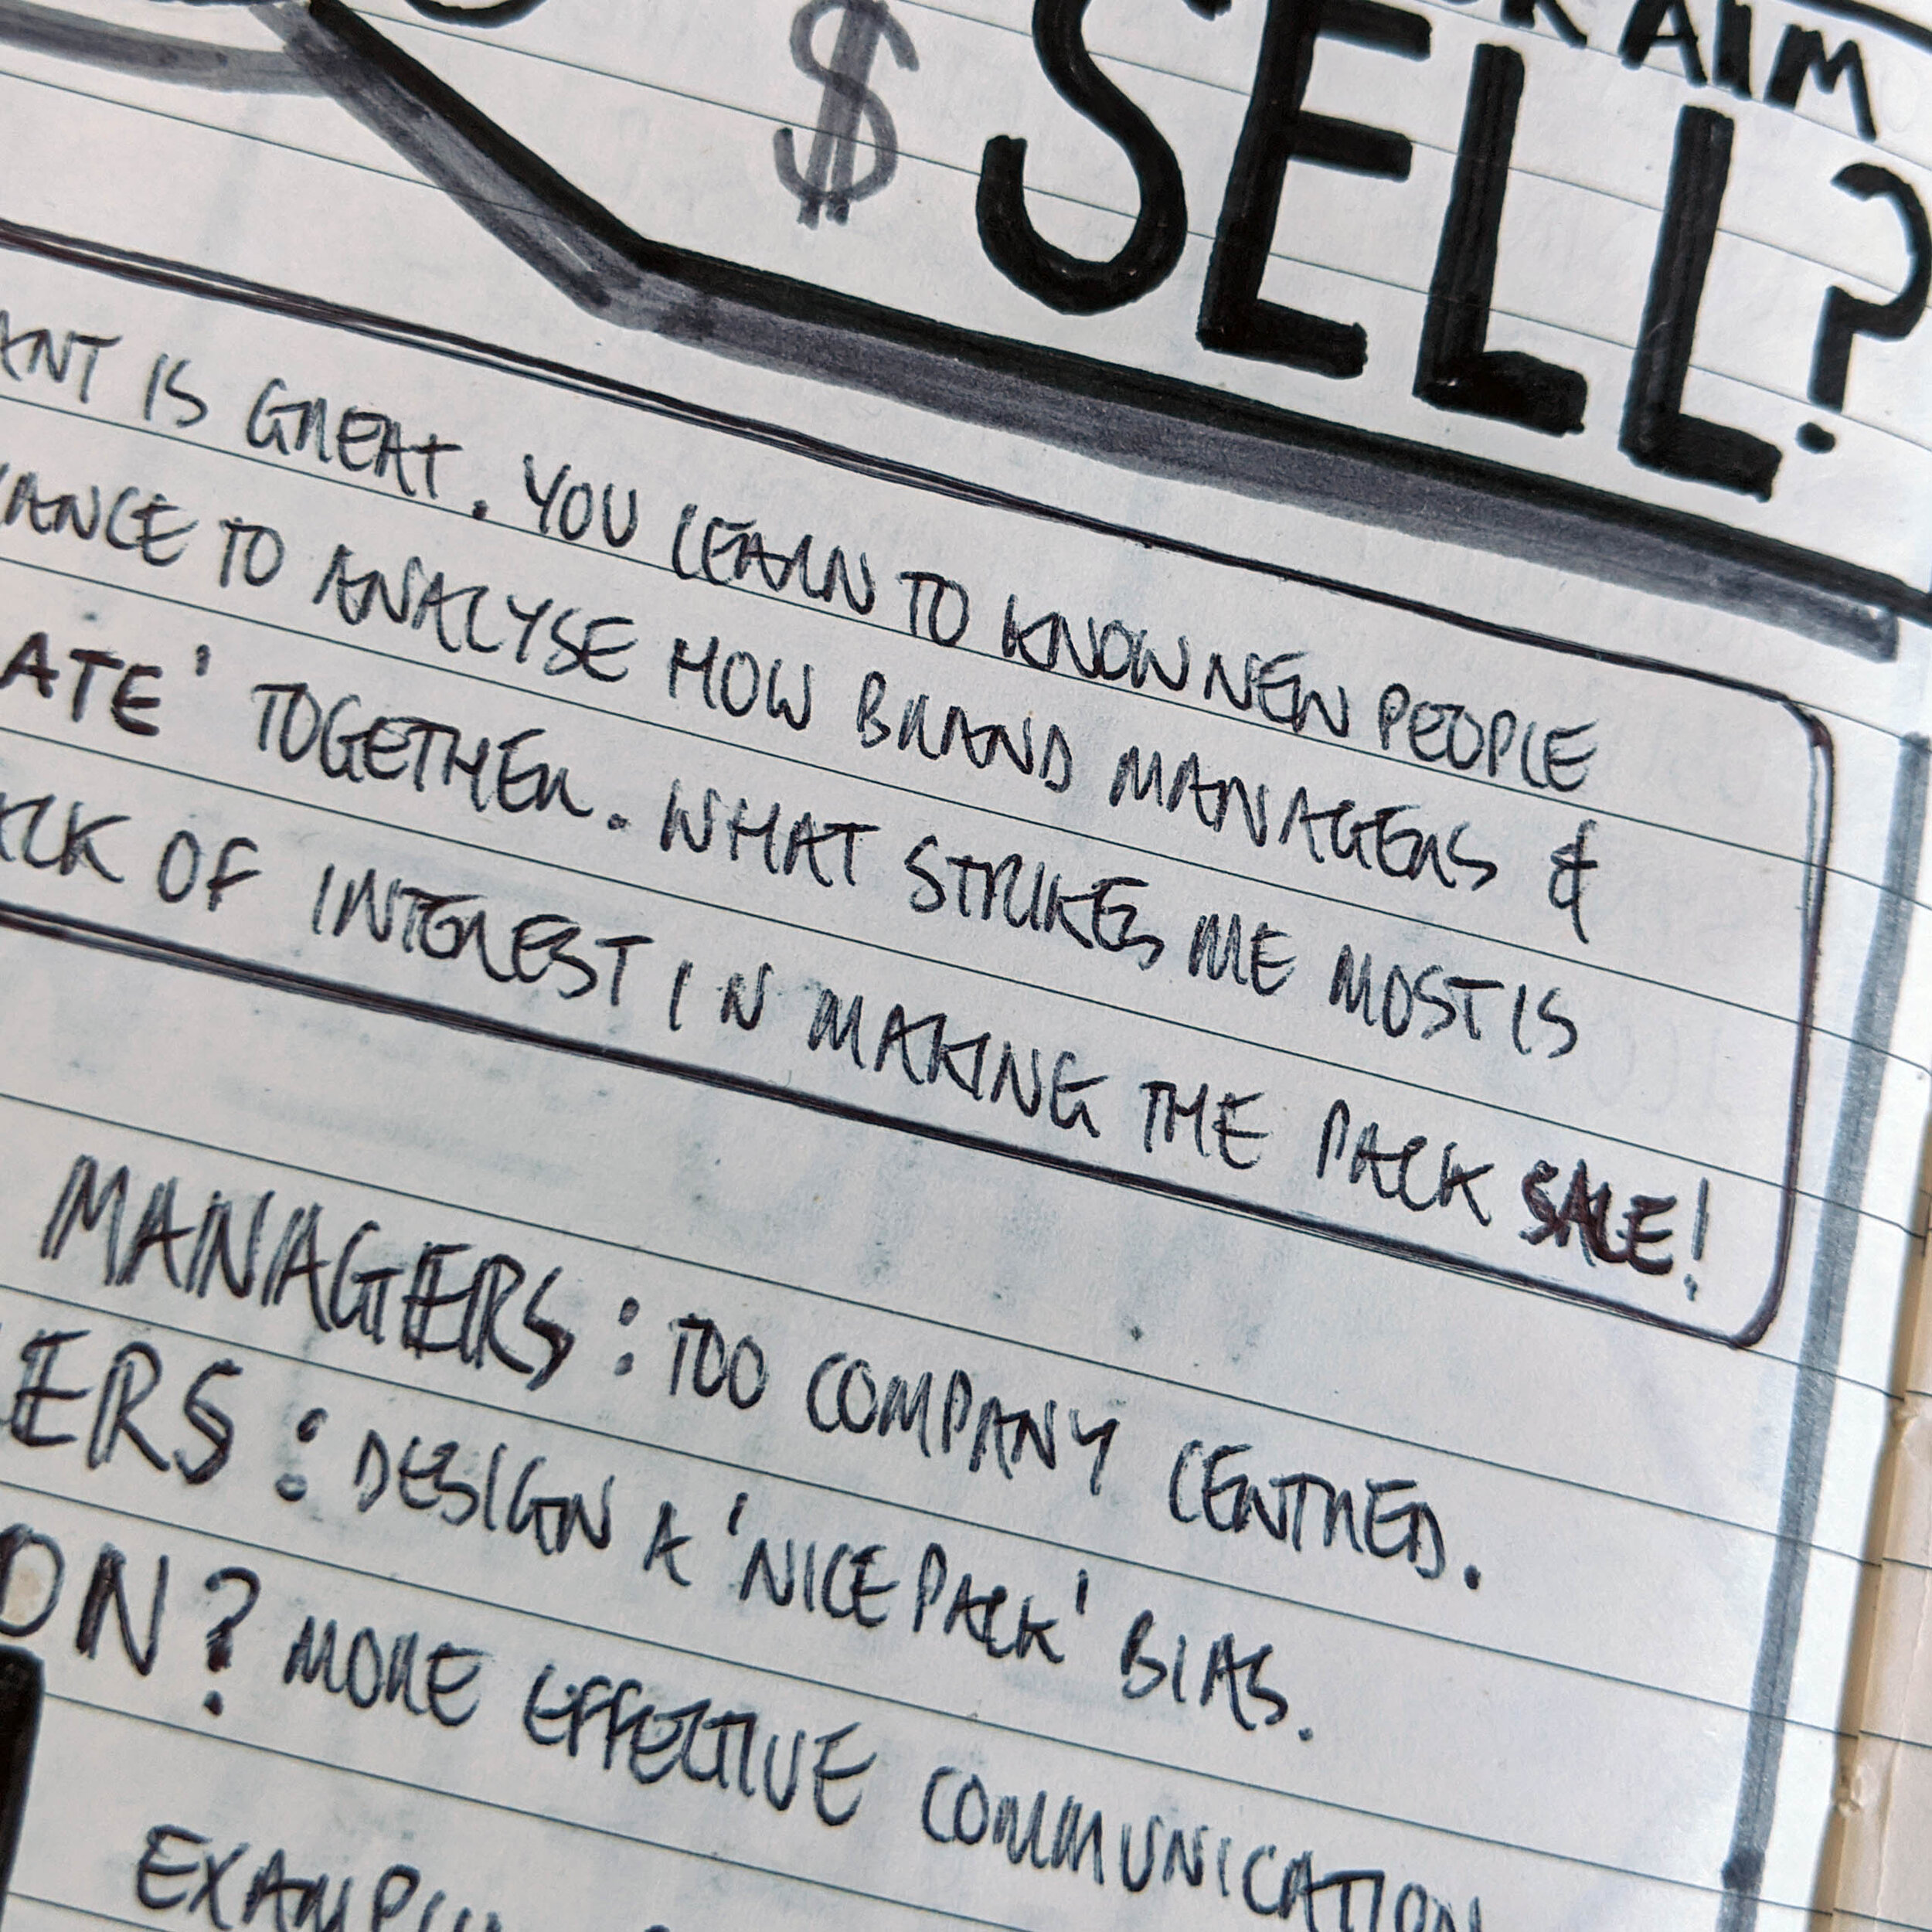 AIM
$ SELL?
ANT IS GREAT. YOU LEARN TO KNOW NEW PEOPLE
ANCE TO ANALYSE HOW BRAND MANAGERS &
ATE' TOGETHER. WHAT STRIKES ME MOST IS
ACK OF INTEREST IN MAKING THE PACK SALE!
MANAGERS: TOO COMPANY CENTRED.
ERS: DESIGN A 'NICE PACK' BIAS.
ON? MORE EFFECTIVE COMMUNICATION